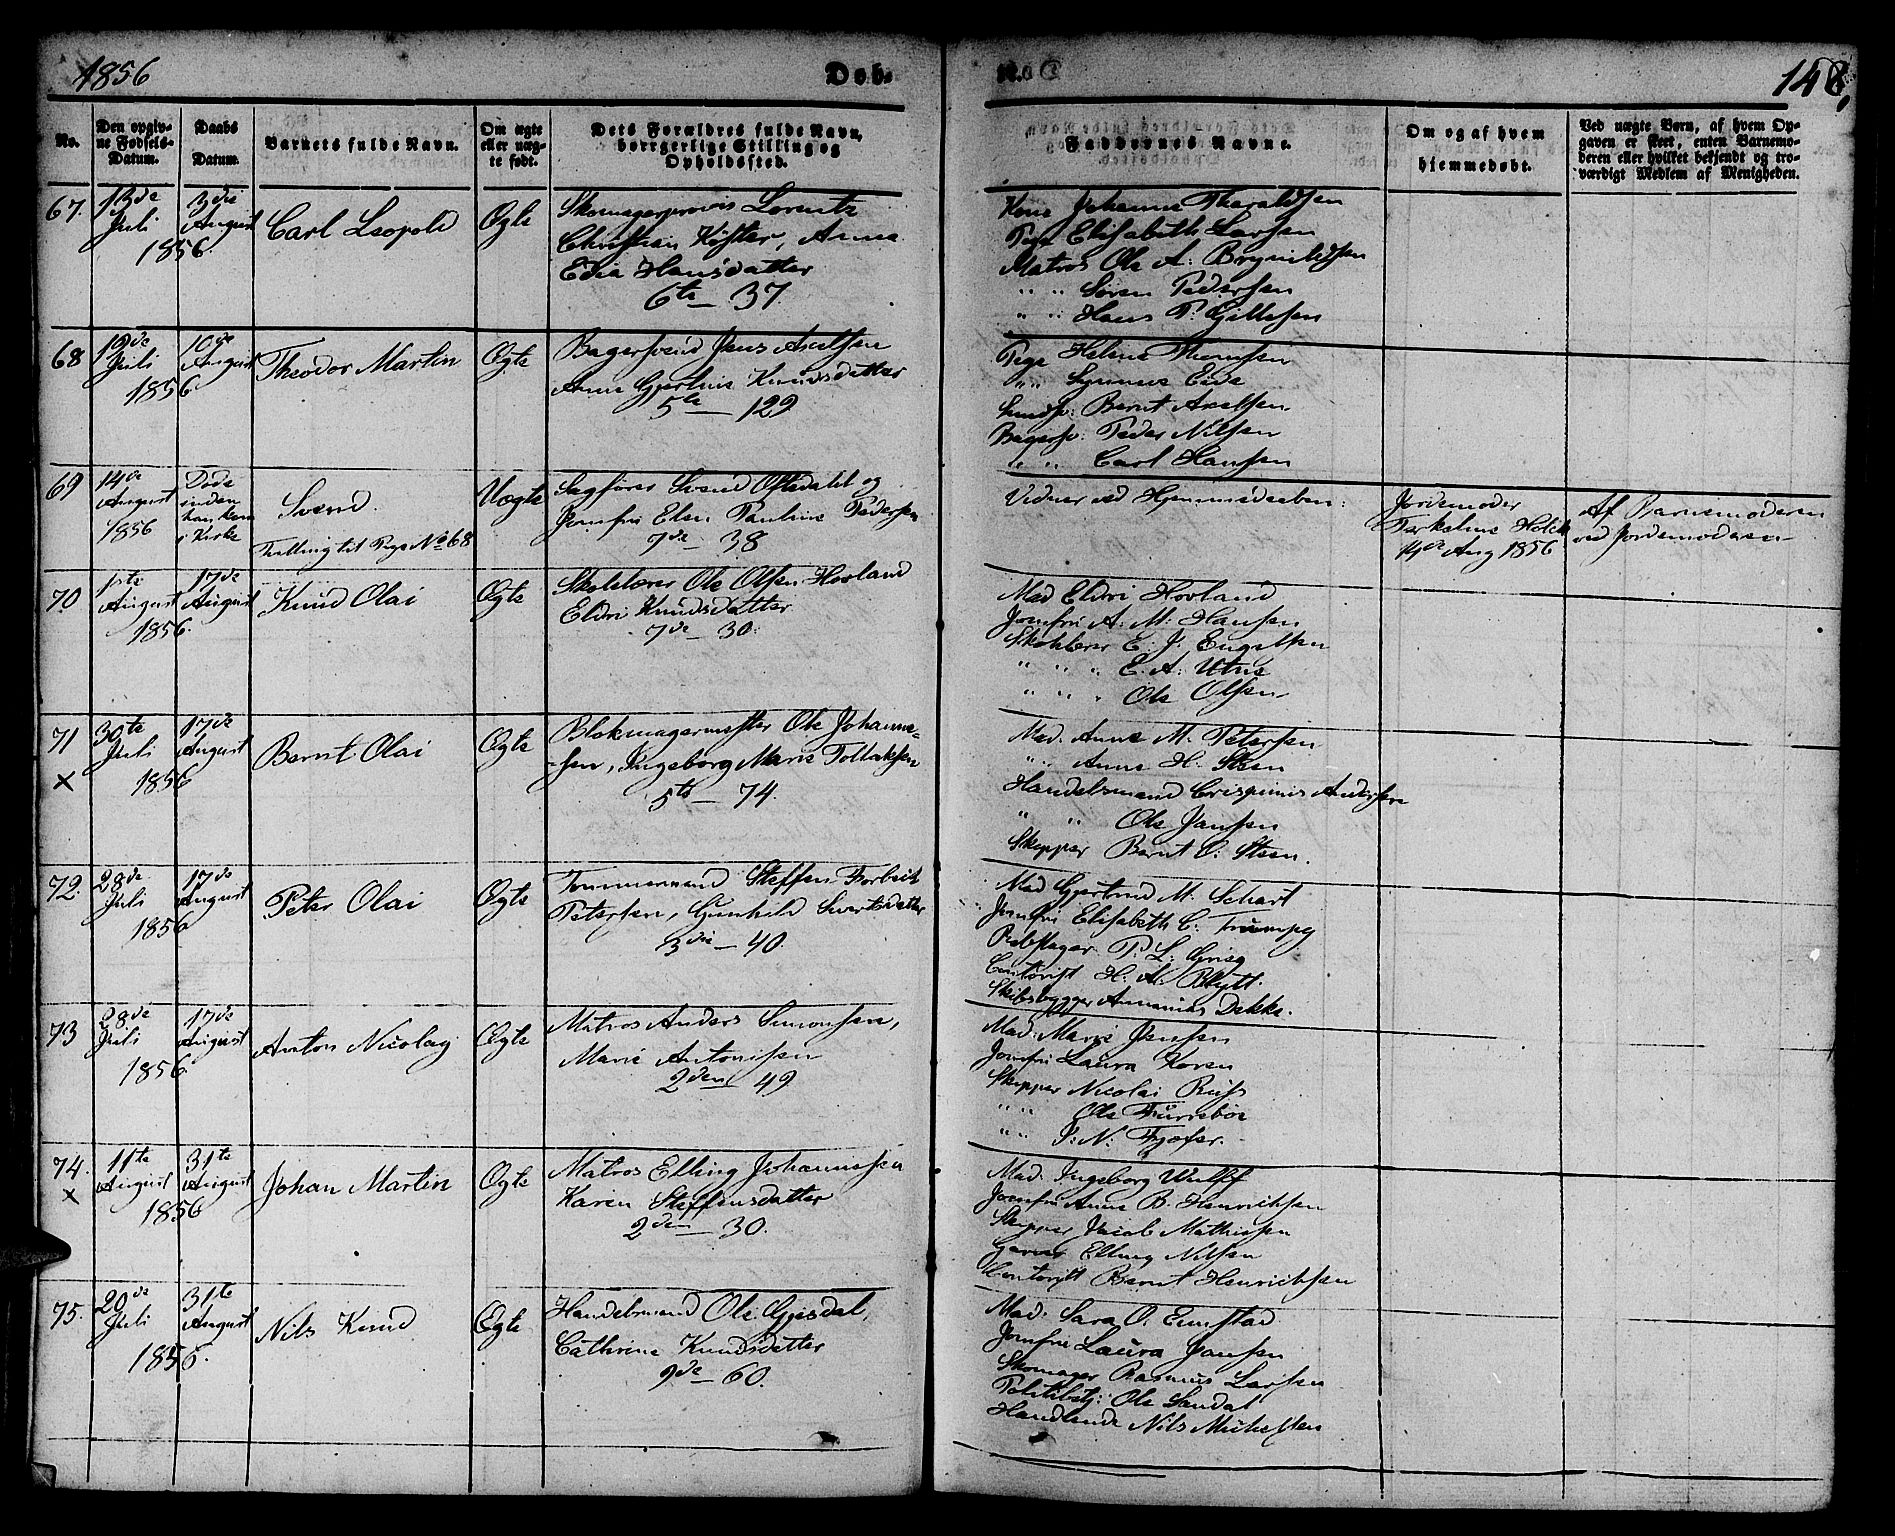 1856
Døb-
146,
No.
Den opgiv-
ne Fødsels-
Datum.
Daabs
Datum.
Barnets fulde Navn.
Om ægte
eller uæg-
te født.
Dets Forældres fulde Navn,
borgerlige Stilling og
Opholdssted.
Faddernes Navne.
Om og af hvem
hjemmedøbt.
Ved uægte Børn, af hvem Op-
gaven er skeet, enten Barnemo-
deren eller hvilket bekjendt og tro-
værdigt Medlem af Menigheden.
67.
13de
Juli
1856.
3die
August
Carl Leopold
Ægte
Lorentz
Christian Køster, Anna
Hansdatter
6te – 37
Kone Johanne Tharaldsen
Pige Elisabeth Larsen
Matros Ole A. Brynildsen
" " Søren Pedersen
" " Hans P. Gillesen
68
19de
Juli
1856
10de
August
Theodor Martin
Ægte
Bagersvend Jens Axelsen
Anne Gjertine Knudsdatter
5te – 129
Pige Helene Thomsen
" " Synneve Eide
Bernt Axelsen
Bagersv: Peder Nilsen
" " Carl Hansen
69
14de
August
1856
Døde
inden
han kom
i Kirke
Svend.
Tvilling til Pige No 68
Uægte
Sagfører Svend Oftedahl og
Jomfru Elen Pauline Pedersen
7de – 38
Vidner ved Hjemmedaaben:
Jordemoder
Holck
14de Aug 1856
Af Barnemoderen
ved Jordemoderen
70
1ste
August
1856.
17de
August
Knud Olai
Ægte
Skolelærer Ole Olsen Hovland
Eldri Knudsdatter
7de – 30.
Mad Eldri Hovland
Jomfru A. M. Hansen
Skolelærer E. J. Engelsen
" " " E. A. Utne
" " " Ole Olsen
71
x
30te
Juli
1856
17de
August
Bernt Olai
Ægte
Blokmagermester Ole Johanne-
-sen, Ingeborg Marie Tollaksen
5te – 74.
Mad. Anne M. Petersen
" " Anne H. Steen
Handelsmand Crispinus Andersen
" " Ole Jansen
Skipper Bernt O. Steen.
72.
28de
Juli
1856
17de
August
Peter Olai
Ægte
Tømmermand Steffen
Petersen, Gunhild
3die – 40.
Mad Gjertrud M. Schart
Jomfru Elisabeth C. Trumpy
Rebslager P. L. Grieg
Contorist H. A. Blytt.
Skibsbygger Annanias Dekke.
73
28de
Juli
1856
17de
August
Anton Nicolay
Ægte
Matros Anders Simonsen,
Marie Antonisen
2den 49
Mad: Marie Jensen
Jomfru Laura Koren
Skipper Nicolai Russ
" " Ole Furrebøe
" " J: N:
74.
x
11te
August
1856
31te
August
Johan Martin
Ægte
Matros Elling Johannesen
Karen Steffensdatter
2den – 30.
Mad. Ingeborg Wulff
Jomfru Anne B. Henriksen
Skipper Jacob Mathiesen
Garver Elling Nilsen
Contorist Bernt Henrichsen
75.
20de
Juli
1856.
31te
August
Nils Knud
Ægte
Handelsmand Ole Gjesdal,
Cathrine Knudsdatter
9de – 60.
Mad. Sara O. Eimstad
Jomfru Laura Jansen
Skomager Rasmus Larsen
Politibetj: Ole Sandal
Handlende Nils Mikelsen